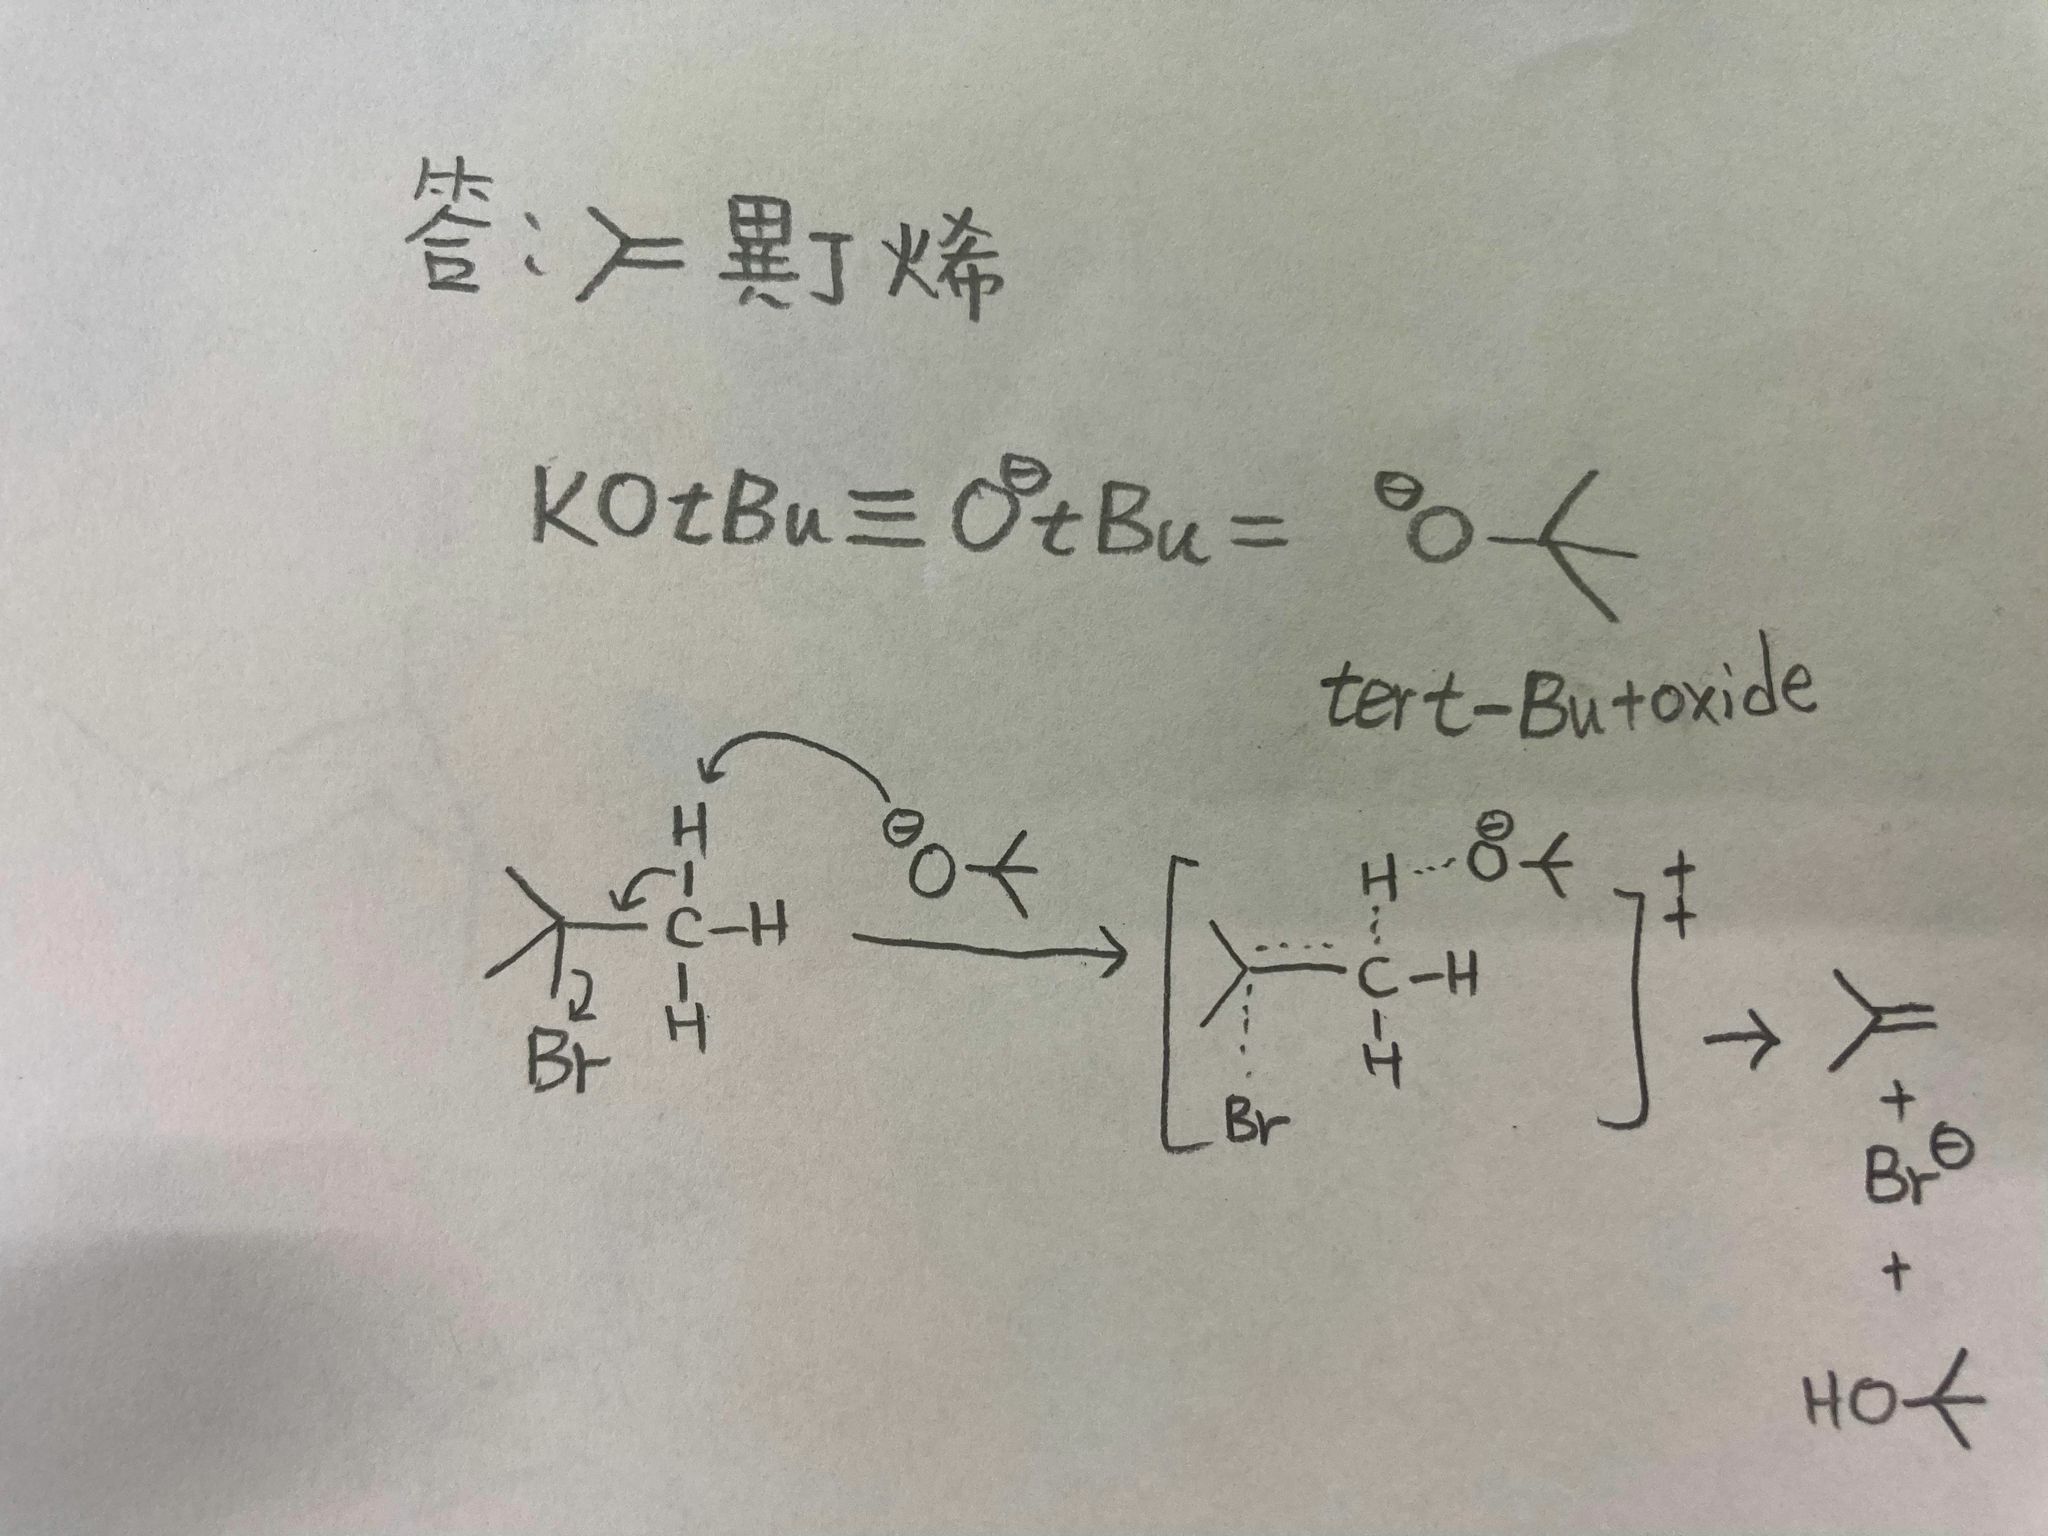 答：異丁烯
KOtBu≡O⊖tBu= ⊖O
tert-Butoxide
H ⊖O
C-H
H
Br
H ⊖O ‡
C-H
H
Br
+
Br⊖
+
HO